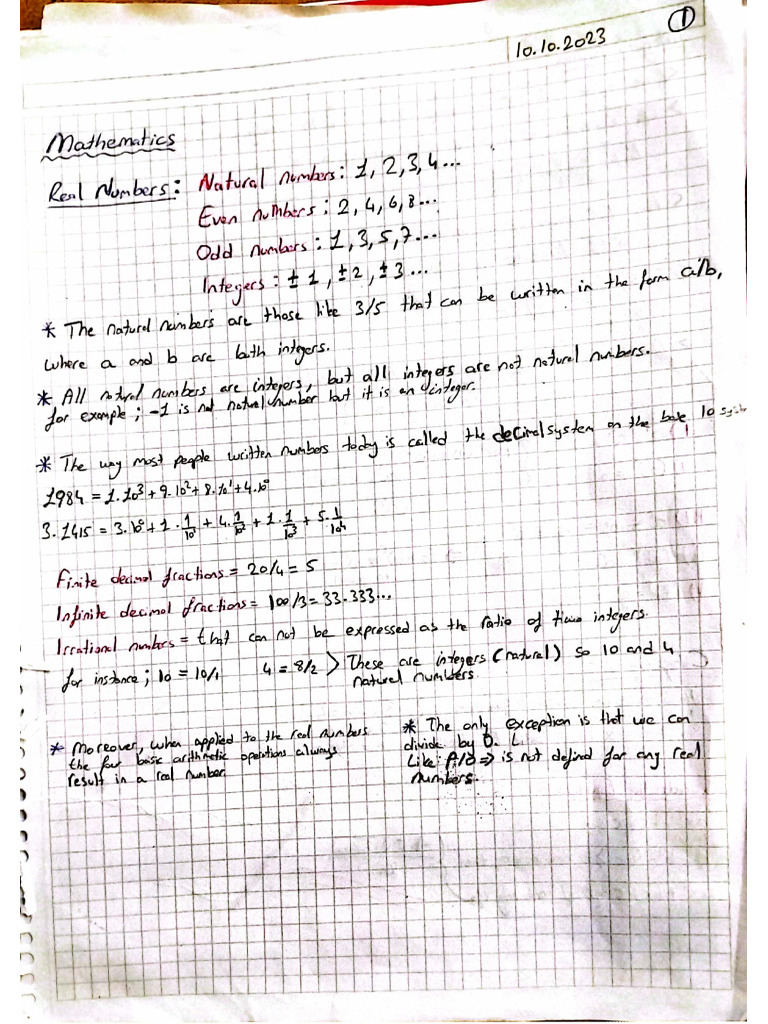 ①
10.10.2023
Mathematics
Real Numbers: Natural numbers: 1, 2, 3, 4...
Even numbers: 2, 4, 6, 8...
Odd numbers: 1, 3, 5, 7...
Integers: ±1, ±2, ±3...
* The natural numbers are those like 3/5 that can be written in the form a/b,
where a and b are both integers.
* All natural numbers are integers, but all integers are not natural numbers.
for example; -1 is not natural number but it is an integer.
* The way most people written numbers today is called the decimal system on the base 10 syst
1984 = 1.10³ + 9.10² + 8.10¹ + 4.10⁰
3.1415 = 3.10⁰ + 1.1/10¹ + 4.1/10² + 1.1/10³ + 5.1/10⁴
Finite decimal fractions = 20/4 = 5
Infinite decimal fractions = 100/3 = 33.333...
Irrational numbers = that can not be expressed as the ratio of integers.
for instance; 10 = 10/1 4 = 8/2 > These are integers (natural) so 10 and 4
natural numbers.
* Moreover, when applied to the real numbers
the four basic arithmetic operations always
result in a real number.
* The only exception is that we can
divide by 0.
Like: A/0 => is not defined for any real
numbers.